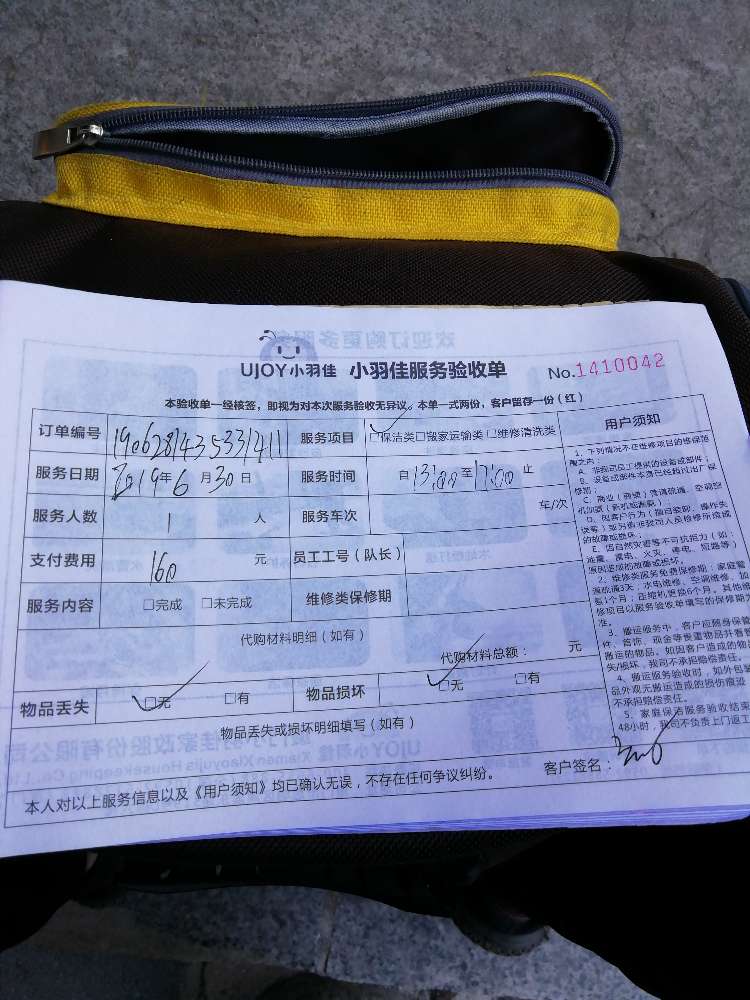 UJOY小羽佳 小羽佳服务验收单 No.1410042
本验收单一经核签，即视为对本次服务验收无异议。本单一式两份，客户留存一份（红）
订单编号 服务项目 ☑保洁类□搬家运输类□维修清洗类
服务日期 2019年6月30日 服务时间 自13:00至17:00止
服务人数 1 人 服务车次 车/次
支付费用 160 元 员工工号（队长）
服务内容 □完成 □未完成 维修类保修期
代购材料明细（如有）
代购材料总额： 元
物品丢失 ☑无 □有 物品损坏 ☑无 □有
物品丢失或损坏明细填写（如有）
客户签名：
本人对以上服务信息以及《用户须知》均已确认无误，不存在任何争议纠纷。
用户须知
1、下列情况不在维修项目的维保范
围之内：
A、非我司员工提供的设备或部件；
B、设备或部件本身已经超过出厂保
修期；
E、因自然灾害等不可抗拒力（如：
地震、雷电、火灾、停电、短路等）
原因造成的故障或损坏。
2、维修类服务免费保修期：家庭管
道疏通3天；水电维修、空调维修、加
氨1个月；压缩机更换6个月。其他维
修项目以服务验收单填写的保修期为
准。
3、搬运服务中，客户应随身保管
件、首饰、现金等贵重物品并看管
搬运的物品。如因客户造成的物品
失/损坏，我司不承担赔偿责任。
4、搬运服务验收时，如外包装
品外观无搬运造成的损伤痕迹
不承担赔偿责任。
5、家庭保洁服务验收结束
48小时，我司不负责上门返工